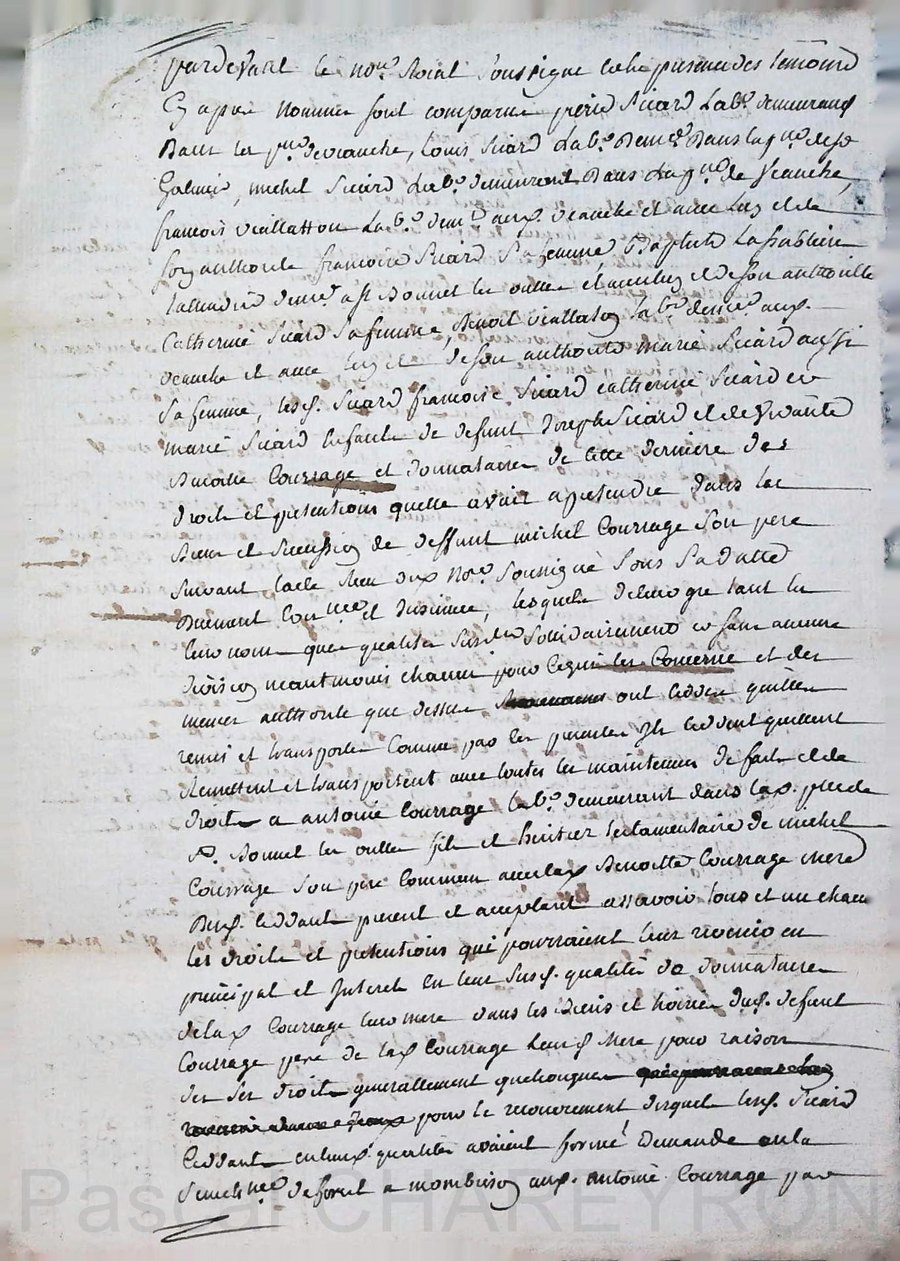 pardevant le no.re Roial soussigne & en presence des temoins
cy apres nommes sont comparus pierre Sicard Lab.r demeurant
dans la p.sse de veauche, Louis Sicard Lab.r dem.t Dans la p.sse de st
Galmier, michel Sicard Lab.r demeurant Dans La p.sse de Veauche,
francois viallatton Lab.r dem.t aux veauche et avec Luy et de
son authorite francoise Sicard Sa femme Baptiste
dem.t a st Bonnet les oulles et avec luy et de son authorite
Catherine Sicard Sa femme, Benoit viallaton lab.r dem.t aux.
veauche et avec luy et de son authorite marie Sicard aussi
Sa femme, les.s Sicard francoise Sicard catherine Sicard et
marie Sicard enfants de defunt Joseph Sicard et de vivante
Benoitte Courrage et donnataires de cette derniere des
droits et pretentions quelle avait a pretendre dans les
Biens et Succession de deffunt michel Courrage Son pere
suivant lacte Recu dux No.re Soussigné sous Sa datte
Duement Con.llé et Insinué, lesquels de leur gre tant en
leurs noms que qualités Susd.tes Solidairement et sans aucune
division neantmoins chacun pour ce qui les Concerne et des
memes authorite que dessus ont ceddes quittes
remis et transportes Comme par les presentes Ils ceddent quittent
Remettent et transportent avec toutes les maintenues de fait et de
droit a antoine Courrage lab.r demeurant dans la p.sse de
st. Bonnet les oulles fils et heritier testamentaire de michel
Courrage Son pere Commun avec lax Benoitte Courrage mere
Dux. Ceddants present et acceptant assavoir tous et un chacun
les droits et pretentions qui pourraient leur revenir en
principal et Interets En leur Susd. qualité de donnataires
de lax Courrage leur mere dans les Biens et hoirie dux. defunt
Courrage pere de lax Courrage leurs mere pour raison
des ses droits generallement quelconques
pour le recouvrement desquels les.s Sicard
Ceddants en leurs qualités avaient formé Demande en la
Senech.ée de forest a montbrison aux. antoine Courrage par
Pascal CHAREYRON